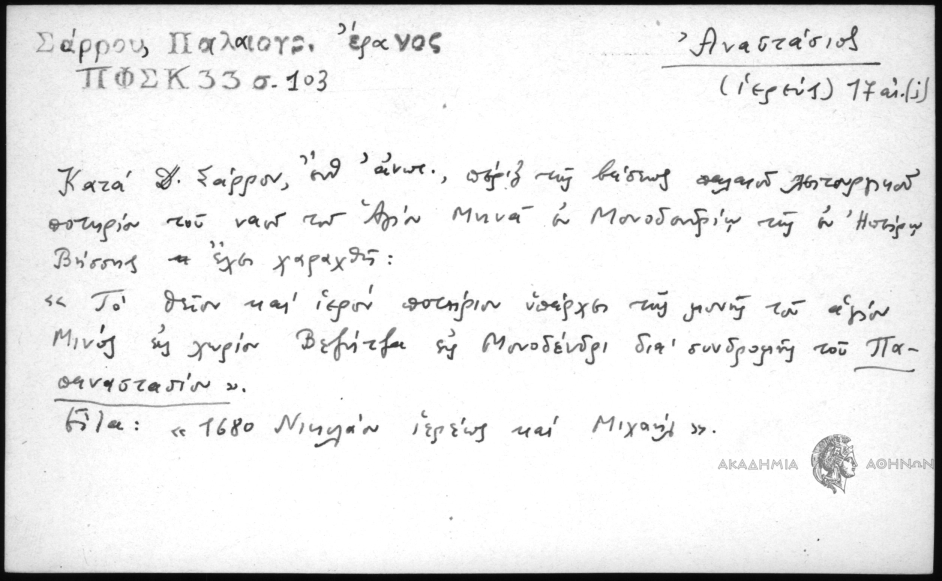 Σάρρου, Παλαιογρ. ἔρανος
ΠΦΣΚ 33 σ. 103
Ἀναστάσιος
(ἱερεύς) 17 αἰ. (j)
Κατά Δ. Σάρρον, ἔνθ' ἀνωτ., πέριξ τῆς βάσεως παλαιοῦ λειτουργικοῦ
ποτηρίου τοῦ ναοῦ τοῦ Ἁγίου Μηνᾶ ἐν Μονοδενδρίῳ τῆς ἐν Ἠπείρῳ
Βίσσης ἔχει χαραχθῆ:
« Τό θεῖον καί ἱερόν ποτήριον ὑπάρχει τῆς μονῆς τοῦ ἁγίου
Μινᾶς εἰς χωρίον εἰς Μονοδένδρι διά συνδρομῆς τοῦ Πα-
παναστασίου ».
Εἶτα: « 1680 Νικολάου ἱερέως καί Μιχαήλ ».
ΑΚΑΔΗΜΙΑ ΑΘΗΝΩΝ